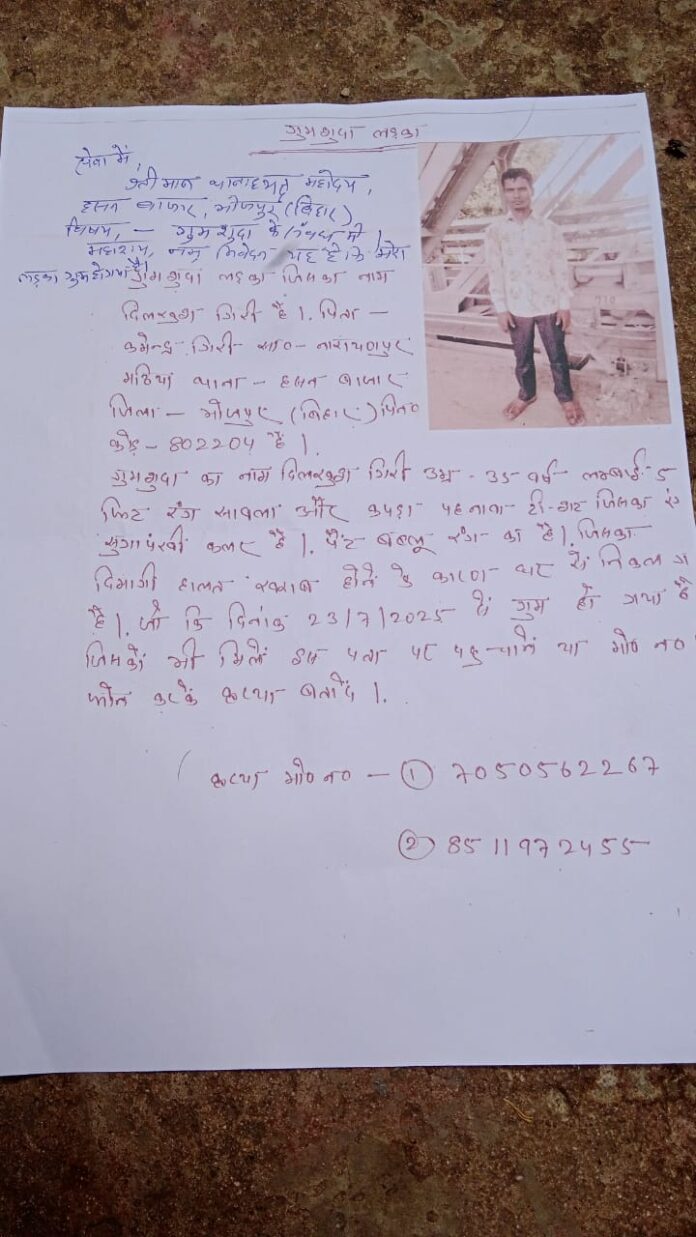 गुमशुदा लड़का
सेवा में,
श्रीमान थानाध्यक्ष महोदय,
हसन बाजार, भोजपुर (बिहार)
विषय, – गुमशुदा के संबंध में।
महाशय, नम्र निवेदन यह है कि मेरा
लड़का गुम हो गया है।
गुमशुदा लड़का जिसका नाम
दिलखुश गिरी है। पिता –
कमेन्द्र गिरी सा०- नारायणपुर
मठिया थाना – हसन बाजार
जिला – भोजपुर (बिहार) पिन०
कोड – 802204 है।
गुमशुदा का नाम दिलखुश गिरी उम्र - 35 वर्ष लम्बाई- 5
फिट रंग सावला और कपड़ा पहनावा टी-शर्ट जिसका रंग
सुगापंखी कलर है। पैंट बब्लू रंग का है। जिसका
दिमागी हालत खराब होने के कारण घर से निकल ग
है। जो कि दिनांक 23/7/2025 से गुम हो गया है
जिसको भी मिले इस पता पर पहुचाने या मो० न०
फोन करके कृपया बतादें।
कृपया मो० न० – ① 7050562267
② 8511972455